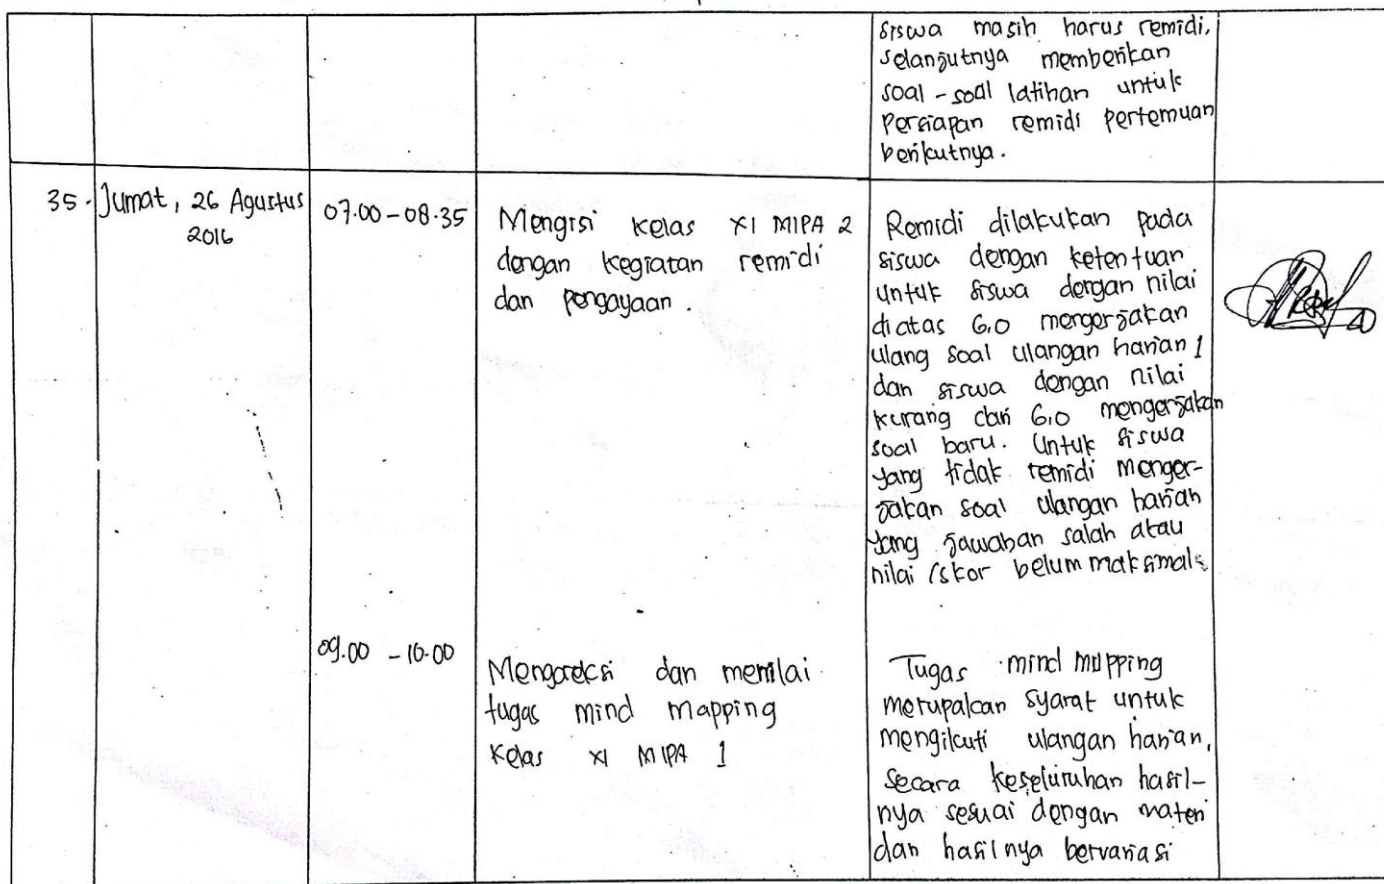 siswa masih harus remidi.
selanjutnya memberikan
soal-soal latihan untuk
Persiapan remidi pertemuan
berikutnya.
35. Jumat, 26 Agustus
2016
07.00-08.35
Mengisi kelas XI MIPA 2
dengan kegiatan remidi
dan pengayaan.
Remidi dilakukan pada
siswa dengan ketentuan
untuk siswa dengan nilai
diatas 6,0 mengerjakan
ulang soal ulangan harian 1
dan siswa dengan nilai
kurang dari 6,0 mengerjakan
soal baru. Untuk siswa
yang tidak remidi menger-
jakan soal ulangan harian
yang jawaban salah atau
nilai/skor belum maksimal.
09.00 - 10.00
Mengoreksi dan menilai
tugas mind mapping
Kelas XI MIPA 1
Tugas mind mapping
merupakan syarat untuk
mengikuti ulangan harian,
secara keseluruhan hasil-
nya sesuai dengan materi
dan hasilnya bervariasi